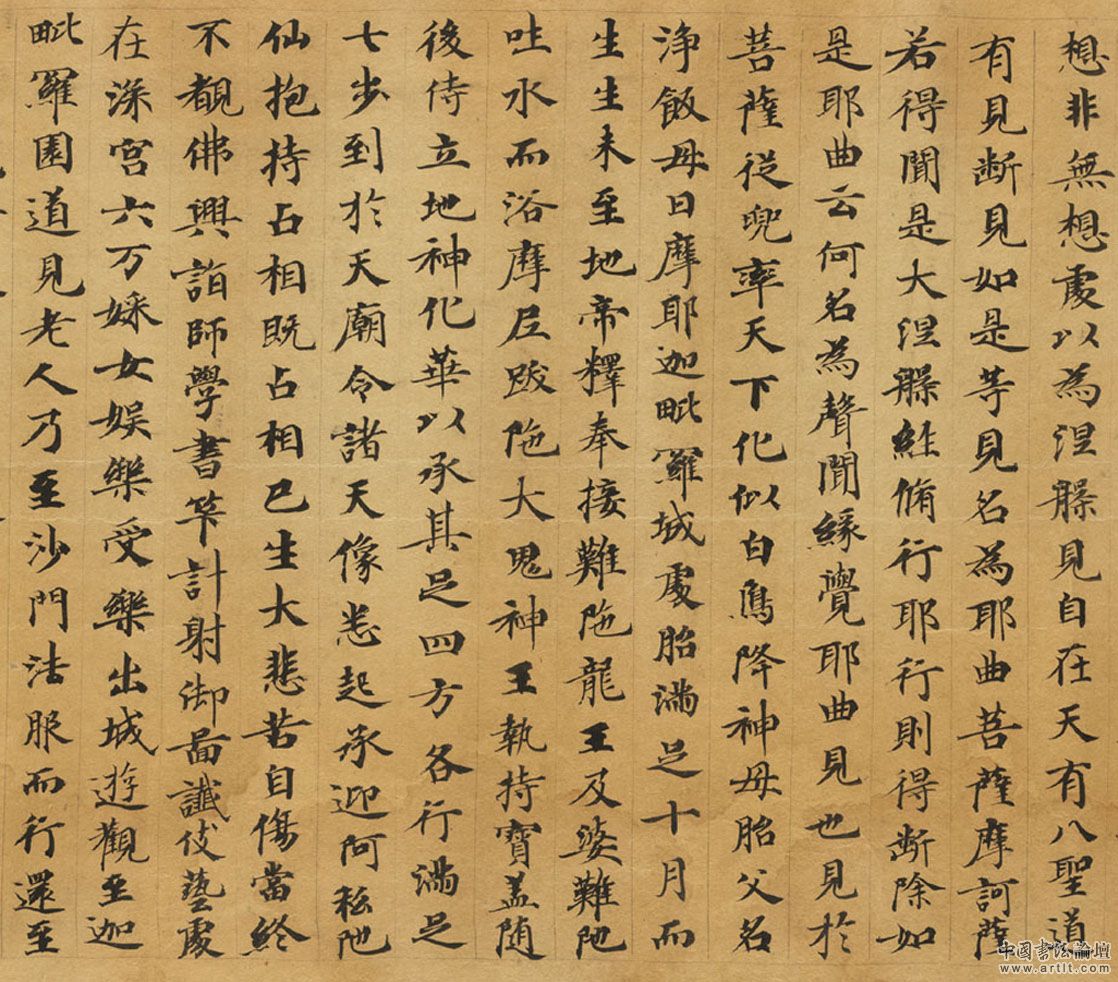 想非無想處以為涅槃見自在天有八聖道
有見断見如是等見名為耶曲菩薩摩訶薩
若得聞是大涅槃経脩行耶行則得断除如
是耶曲云何名為聲聞緣覺耶曲見也見於
菩薩從兜率天下化似白象降神母胎父名
淨飯母曰摩耶迦毗羅城處胎滿足十月而
生生未至地帝釋奉接難陁龍王及婆難陁
吐水而浴摩尼跋陁大鬼神王執持寶盖随
後侍立地神化華以承其足四方各行滿足
七步到於天廟令諸天像悉起承迎阿私陁
仙抱持占相既占相已生大悲苦自傷當終
不覩佛興詣師學書筭計射御啚讖伎藝處
在深宮六万婇女娱樂受樂出城遊觀至迦
毗羅園道見老人乃至沙門法服而行還至
中国書法論壇
www.artlt.com